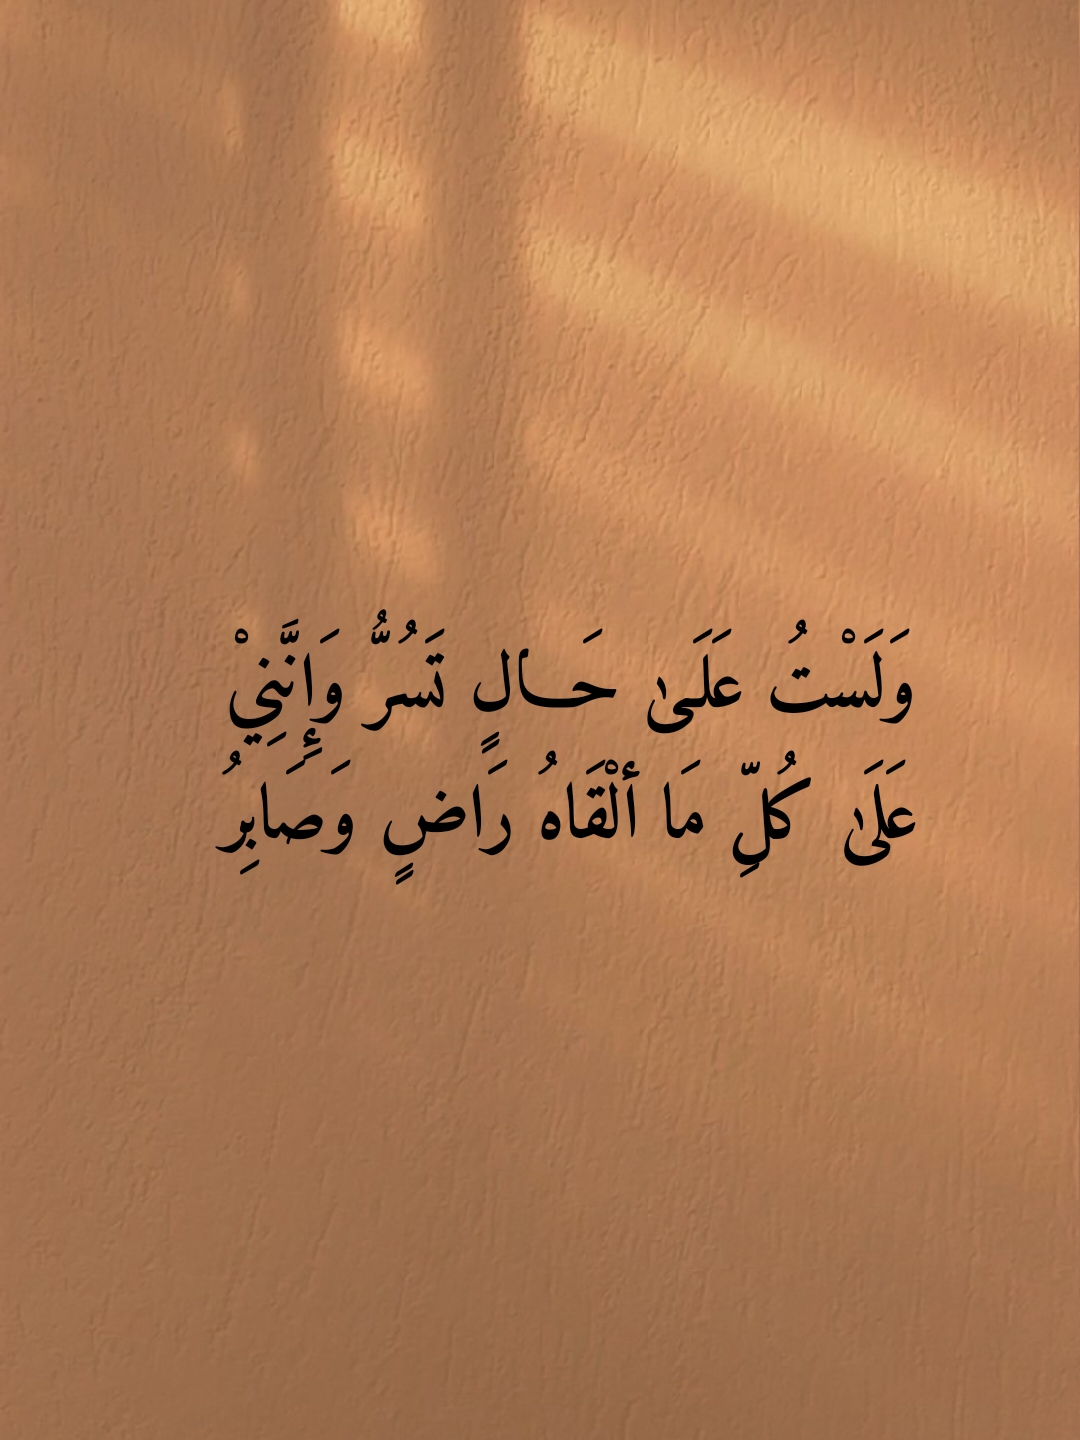 وَلَسْتُ عَلَىٰ حَـــالٍ تَسُرُّ وَإِنَّنِيْ
عَلَىٰ كُلِّ مَا ألْقَاهُ رَاضٍ وَصَابِرُ